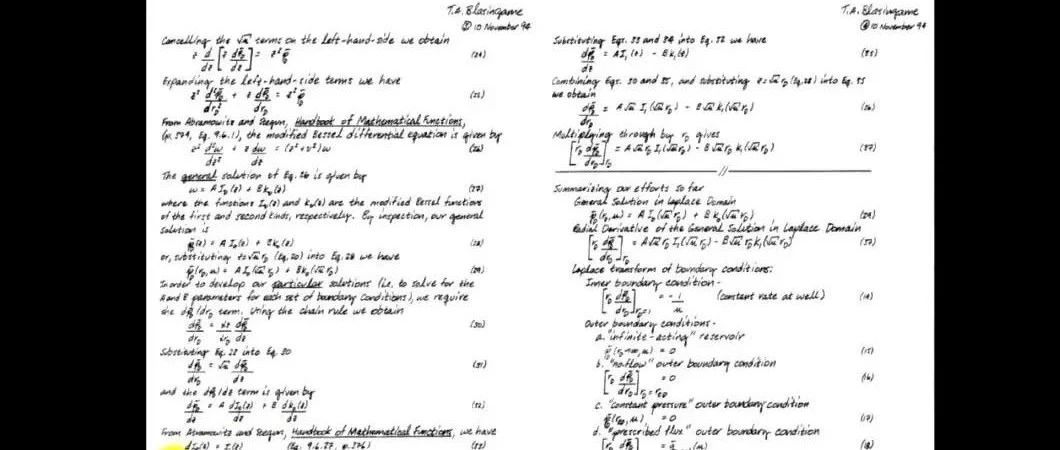 T.A. Blasingame
③ 10 November 94
Cancelling the √u terms on the left-hand-side we obtain
z d/dz [z dp̄_D/dz] = z² p̄_D (24)
Expanding the left-hand-side terms we have
z² d²p̄_D/dr_D² + z dp̄_D/dr_D = z² p̄_D (25)
From Abramowitz and Stegun, Handbook of Mathematical Functions,
the modified Bessel differential equation is given by
z² d²w/dz² + z dw/dz = (z²+v²)w (26)
The general solution of Eq. 26 is given by
w = A I₀(z) + B k₀(z) (27)
where the functions I₀(z) and k₀(z) are the modified Bessel functions
of the first and second kinds, respectively. By inspection, our general
solution is
p̄_D(z) = A I₀(z) + B k₀(z) (28)
or, substituting z=√u r_D (Eq. 20) into Eq. 28 we have
p̄_D(r_D, u) = A I₀(√u r_D) + B k₀(√u r_D) (29)
In order to develop our particular solutions (i.e. to solve for the
A and B parameters for each set of boundary conditions), we require
the dp̄_D/dr_D term. Using the chain rule we obtain
dp̄_D/dr_D = dz/dr_D dp̄_D/dz (30)
Substituting Eq. 22 into Eq. 30
dp̄_D/dr_D = √u dp̄_D/dz (31)
and the dp̄_D/dz term is given by
dp̄_D/dz = A dI₀(z)/dz + B dk₀(z)/dz (32)
From Abramowitz and Stegun, Handbook of Mathematical Functions, we have
dI₀(z) = I₁(z) (Eq. 9.6.27, p.376) (33)
T.A. Blasingame
④ 10 November 94
Substituting Eqs. 33 and 34 into Eq. 32 we have
dp̄_D/dz = A I₁(z) - B k₁(z) (35)
Combining Eqs. 30 and 35, and substituting z=√u r_D into Eq. 35
we obtain
dp̄_D/dr_D = A √u I₁(√u r_D) - B √u k₁(√u r_D) (36)
Multiplying through by r_D gives
[r_D dp̄_D/dr_D]r_D = A √u r_D I₁(√u r_D) - B √u r_D k₁(√u r_D) (37)
Summarizing our efforts so far
General Solution in Laplace Domain
p̄_D(r_D, u) = A I₀(√u r_D) + B k₀(√u r_D) (29)
Radial Derivative of the General Solution in Laplace Domain
[r_D dp̄_D/dr_D]r_D = A √u r_D I₁(√u r_D) - B √u r_D k₁(√u r_D) (37)
Laplace transform of boundary conditions:
Inner boundary condition -
[r_D dp̄_D/dr_D]r_D=1 = - 1/u (constant rate at well) (14)
Outer boundary conditions -
a. "infinite-acting" reservoir
p̄_D(r_D→∞, u) = 0 (15)
b. "no-flow" outer boundary condition
[r_D dp̄_D/dr_D]r_D=r_eD = 0 (16)
c. "constant pressure" outer boundary condition
p̄_D(r_eD, u) = 0 (17)
d. "prescribed flux" outer boundary condition
(18)